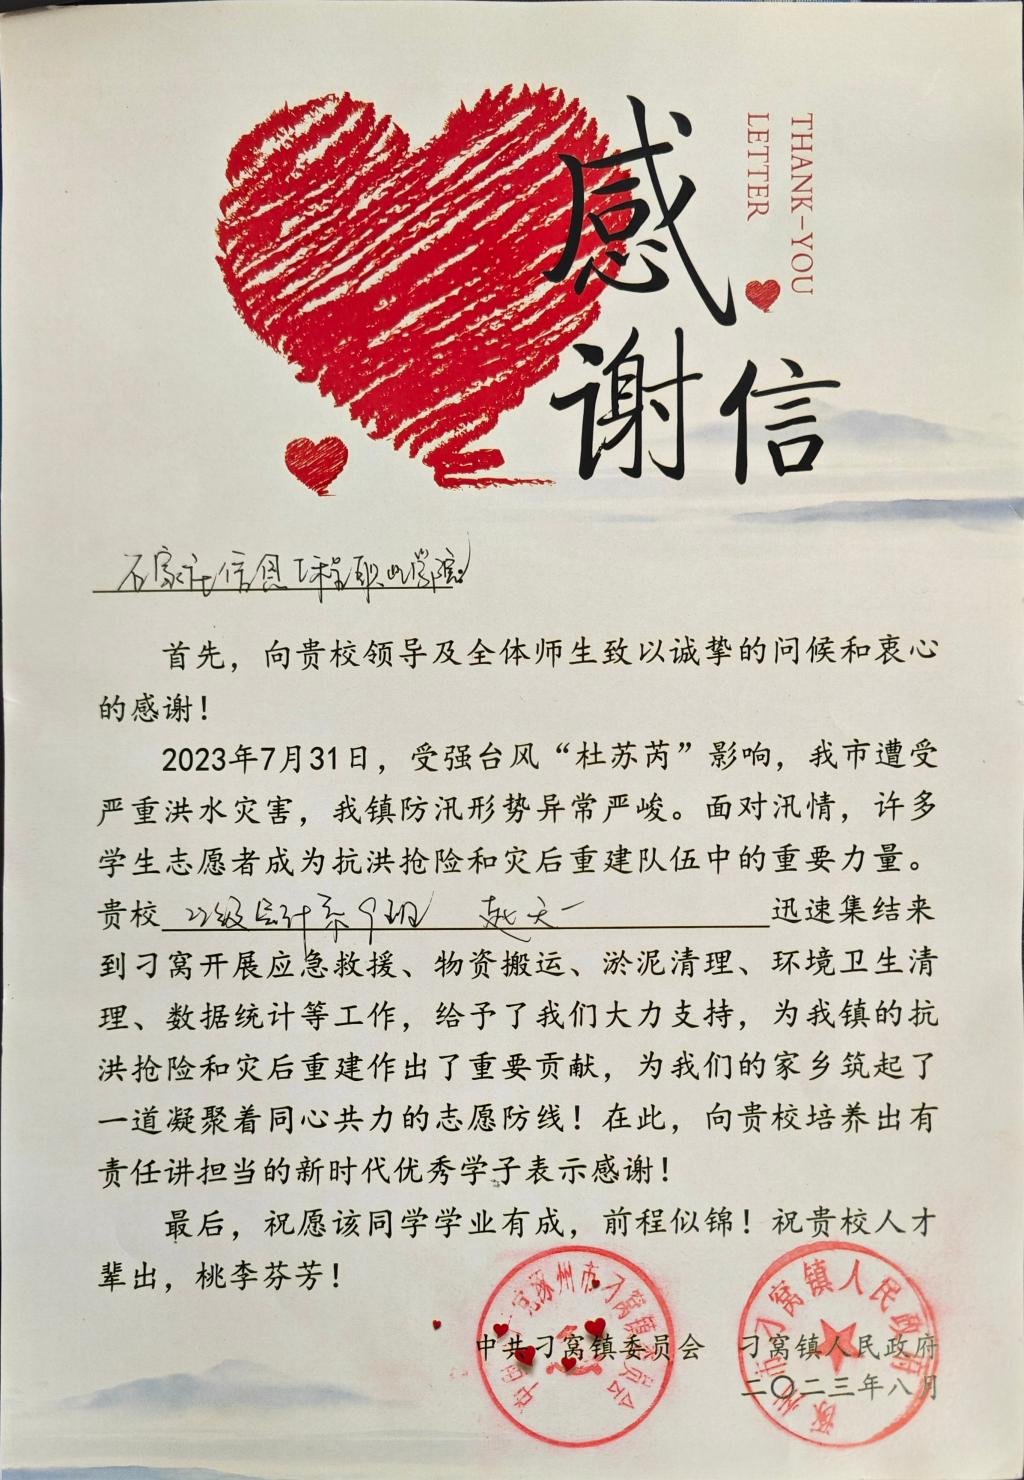 感谢信
THANK-YOU
LETTER
石家庄信息工程职业学院:
首先，向贵校领导及全体师生致以诚挚的问候和衷心
的感谢！
2023年7月31日，受强台风“杜苏芮”影响，我市遭受
严重洪水灾害，我镇防汛形势异常严峻。面对汛情，许多
学生志愿者成为抗洪抢险和灾后重建队伍中的重要力量。
贵校 22级会计系9班 赵天一 迅速集结来
到刁窝开展应急救援、物资搬运、淤泥清理、环境卫生清
理、数据统计等工作，给予了我们大力支持，为我镇的抗
洪抢险和灾后重建作出了重要贡献，为我们的家乡筑起了
一道凝聚着同心共力的志愿防线！在此，向贵校培养出有
责任讲担当的新时代优秀学子表示感谢！
最后，祝愿该同学学业有成，前程似锦！祝贵校人才
辈出，桃李芬芳！
中共刁窝镇委员会 刁窝镇人民政府
二〇二三年八月
中国共产党涿州市刁窝镇委员会
涿州市刁窝镇人民政府